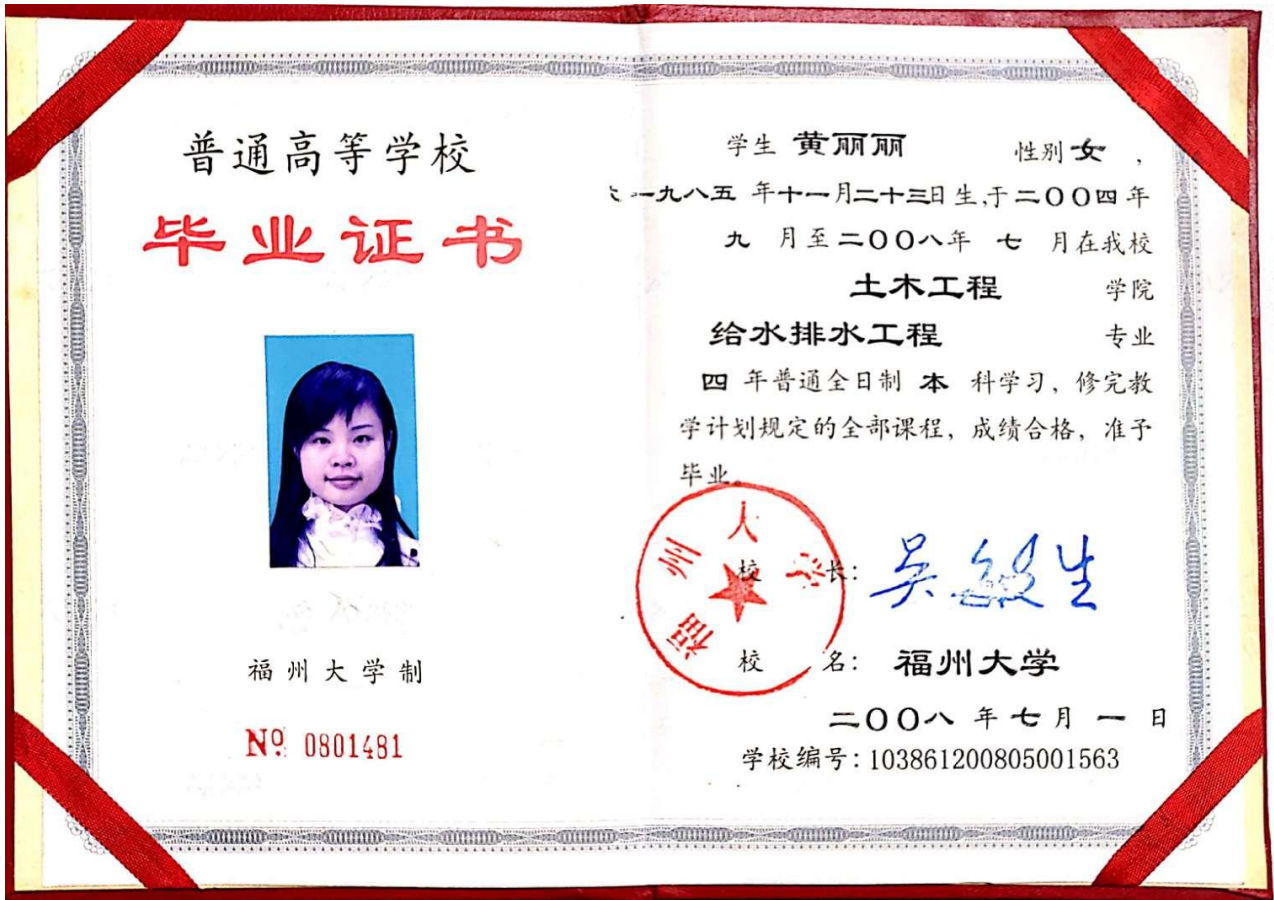 普通高等学校
毕业证书
福州大学制
Nº 0801481
学生 黄丽丽 性别 女 ，
一九八五 年十一月二十三日生,于二〇〇四年
九 月至二〇〇八年 七 月在我校
土木工程 学院
给水排水工程 专业
四 年普通全日制 本 科学习，修完教
学计划规定的全部课程，成绩合格，准予
毕业。
福州大学
校 长：吴敏生
校 名：福州大学
二〇〇八 年 七 月 一 日
学校编号：103861200805001563